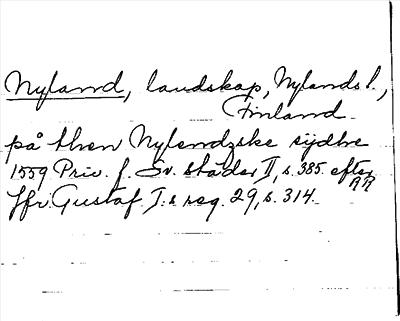 Nyland, landskap, Nylands l.,
Finland.
på then Nylendzske sijdhe
1559 Priv. f. Sv. städer II, s. 385. efter
RR
Jfr. Gustaf I:s reg. 29, s. 314.